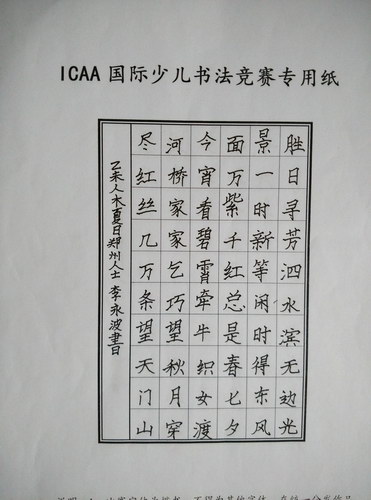 ICAA 国际少儿书法竞赛专用纸
胜日寻芳泗水滨无边光
景一时新等闲时得东风
面万紫千红总是春七夕
今宵看碧霄牵牛织女渡
河桥家家乞巧望秋月穿
尽红丝几万条望天门山
乙未人木夏日郑州人士 李永波書日